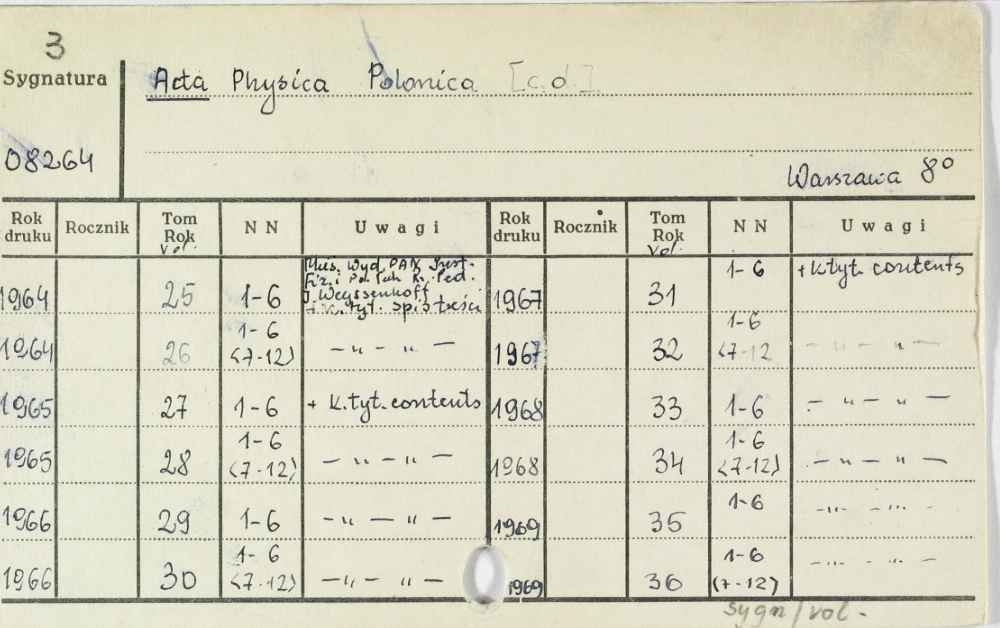 3
Sygnatura
Acta Physica Polonica [c.d.]
08264
Warszawa 8°
Rok druku Rocznik Tom Rok Vol. N N Uwagi Rok druku Rocznik Tom Rok Vol. N N Uwagi
1964 25 1-6
Wyd. PAN Inst.
Fiz. i
J. Weyssenhoff
+ k. tyt. spis treści
1967 31 1-6 + k.tyt. contents
1964 26 1-6 (7-12) – „ – „ – 1967 32 1-6 (7-12 – „ – „ –
1965 27 1-6 + k.tyt. contents 1968 33 1-6 – „ – „ –
1965 28 1-6 (7-12) – „ – „ – 1968 34 1-6 (7-12) – „ – „ –
1966 29 1-6 – „ – „ – 1969 35 1-6 – „ – „ –
1966 30 1-6 (7-12) – „ – „ – 1969 36 1-6 (7-12) – „ – „ –
sygn/vol.